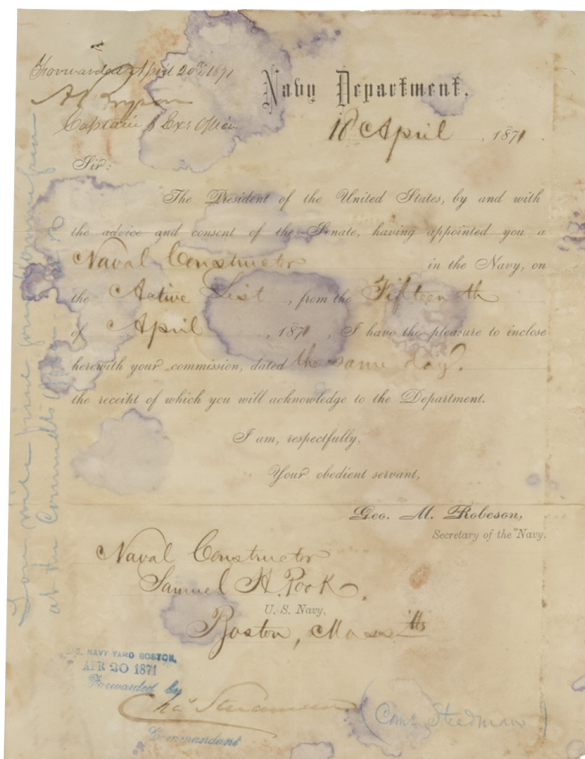 Forwarded April 20th 1871
Captain & Exr Officer
Navy Department.
18 April, 1871.
Sir:
The President of the United States, by and with
the advice and consent of the Senate, having appointed you a
Naval Constructor in the Navy, on
the Active List, from the Fifteenth
of April, 1871, I have the pleasure to inclose
herewith your commission, dated the same day.
the receipt of which you will acknowledge to the Department.
I am, respectfully,
Your obedient servant,
Geo. M. Robeson,
Secretary of the Navy.
Naval Constructor
Samuel H. Pook.
U. S. Navy,
Boston, Mass
NAVY YARD BOSTON,
APR 20 1871
Forwarded by
Commandant
(Com. Steedman)
You will
at the